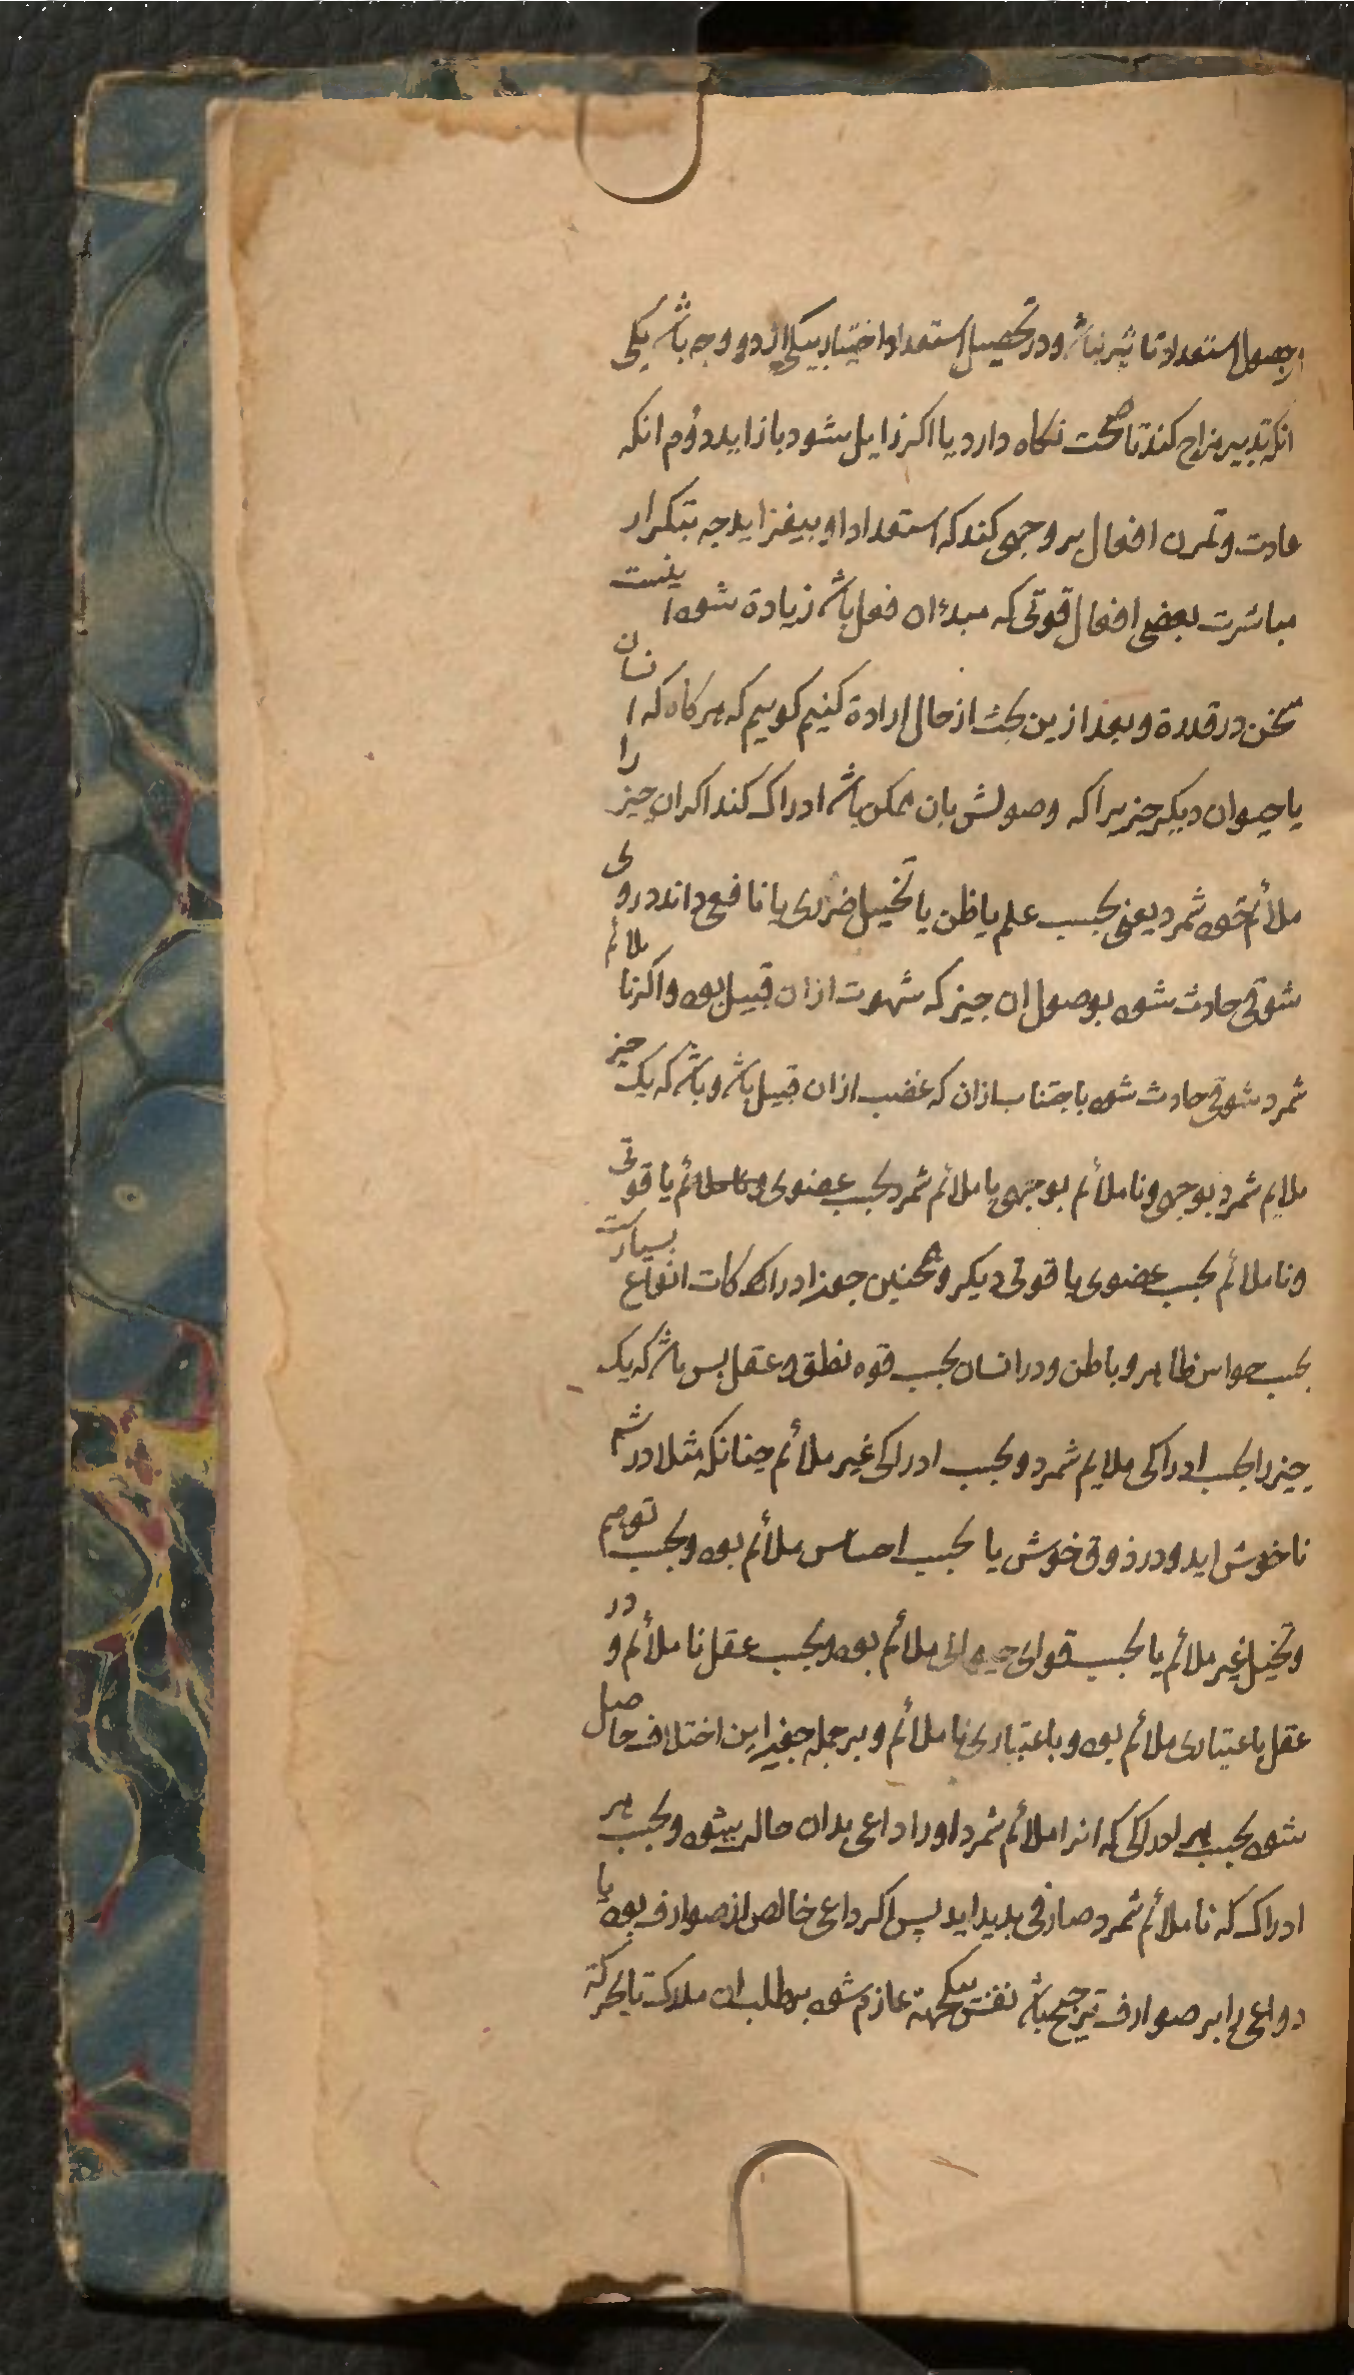 در حصول استعداد تاثیر نباشد و در تحصیل استعداد اختیار بیکی از دو وجه باشد یکی
انکه تدبیر مزاج کند تا صحت نکاه دارد یا اکر زایل شود باز اید دوم انکه
عادت و تمرن افعال بر وجهی کند که استعداد او بیفزاید چه بتکرار
مباشرت بعضی افعال قوتی که مبدء ان فعل باشد زیادة شود اینست
سخن در قدرة و بعد از این بحث از حال ارادة کنیم کوییم که هر کاه که انسان
یا حیوان دیکر چیزیرا که وصولش بان ممکن باشد ادراک کند اکر ان چیز را
ملائم خود شمرد یعنی بحسب علم یا ظن یا تخیل ضروری یا نافع داند در وی
شوقی حادث شود بوصول ان چیز که شهوت از ان قبیل بود و اکر نا ملائم
شمرد شوقی حادث شود باجتناب ازان که غضب از ان قبیل باشد و باشد که یک چیز
ملایم شمرد بوجهی و نا ملائم بوجهی یا ملائم شمرد بحسب عضوی یا قوتی
و نا ملائم بحسب عضوی یا قوتی دیکر و همچنین چون ادراکات انواع بسیارست
بحسب حواس ظاهر و باطن و در انسان بحسب قوه نطق و عقل پس باشد که یک
چیز را بحسب ادراکی ملایم شمرد و بحسب ادراکی غیر ملائم چنانکه مثلا در شم
ناخوش اید و در ذوق خوش یا بحسب احساس ملائم بود و بحسب توهم
و تخیل غیر ملائم یا بحسب قوای حیوانی ملائم بود و بحسب عقل نا ملائم و در
عقل باعتباری ملائم بود و باعتباری نا ملائم و بر جمله چون این اختلاف حاصل
شود بحسب هر ادراکی که انرا ملائم شمرد او را داعی بدان حاله بیشود و بحسب هر
ادراک که نا ملائم شمرد صارفی پدید اید پس اکر داعی خالص از صوارف بود یا
دواعی را بر صوارف ترجیح باشد نفس بیکجهة عازم شود بر طلب ان ملاک تا بحرکة